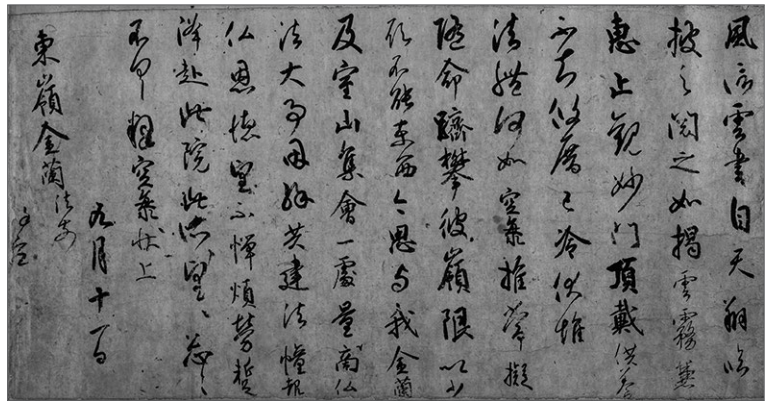 風信雲書自天翔臨
披之閲之如揭雲霧兼
惠止觀妙門頂戴供養
不知攸厝已冷伏惟
法體何如空海推常擬
隨命躋攀彼嶺限以少
願不能東西今思与我金蘭
及室山集會一處量商仏
法大事因緣共建法幢報
仏恩德望不憚煩勞蹔
降赴此院此所望〻忩〻
不具釋空海狀上
九月十一日
東嶺金蘭法前
謹空